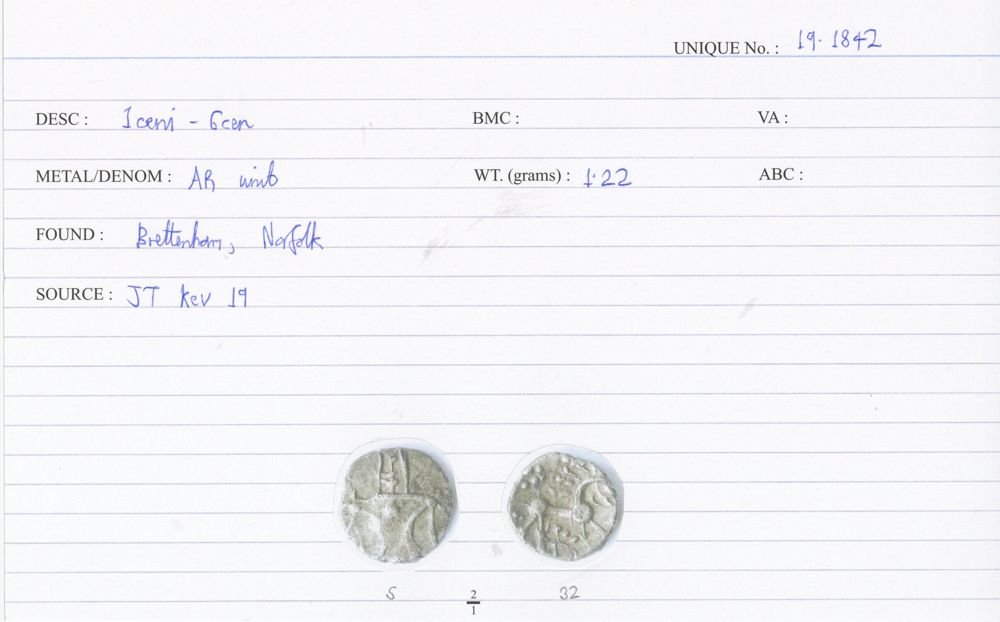 UNIQUE No. : 19. 1842
DESC : Iceni - Ecen BMC : VA :
METAL/DENOM : AR unit WT. (grams) : 1.22 ABC :
FOUND : Brettenham, Norfolk
SOURCE : JT Kev 19
5 2/1 32